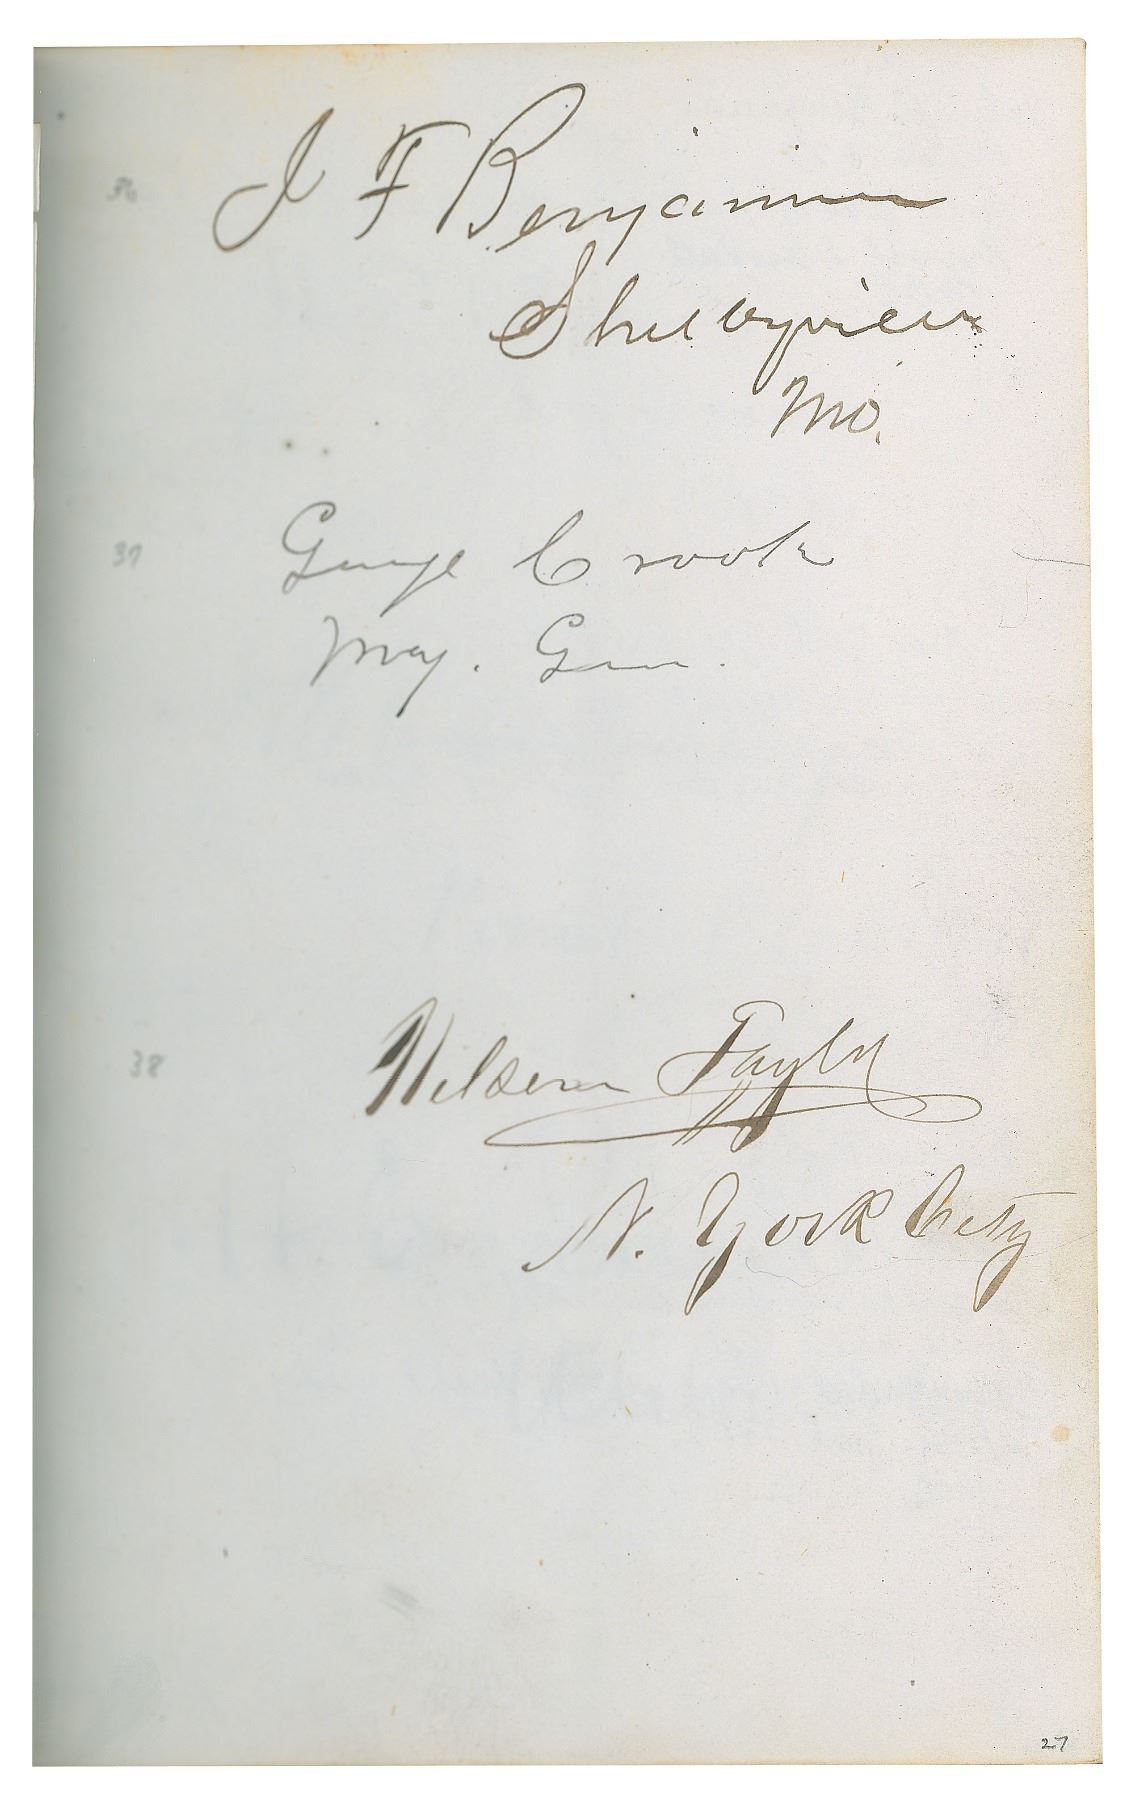 36 J F Benjamin
Shelbyville
Mo.
37 George Crook
Maj. Gen.
38 Nelson Taylor
N. York City
27